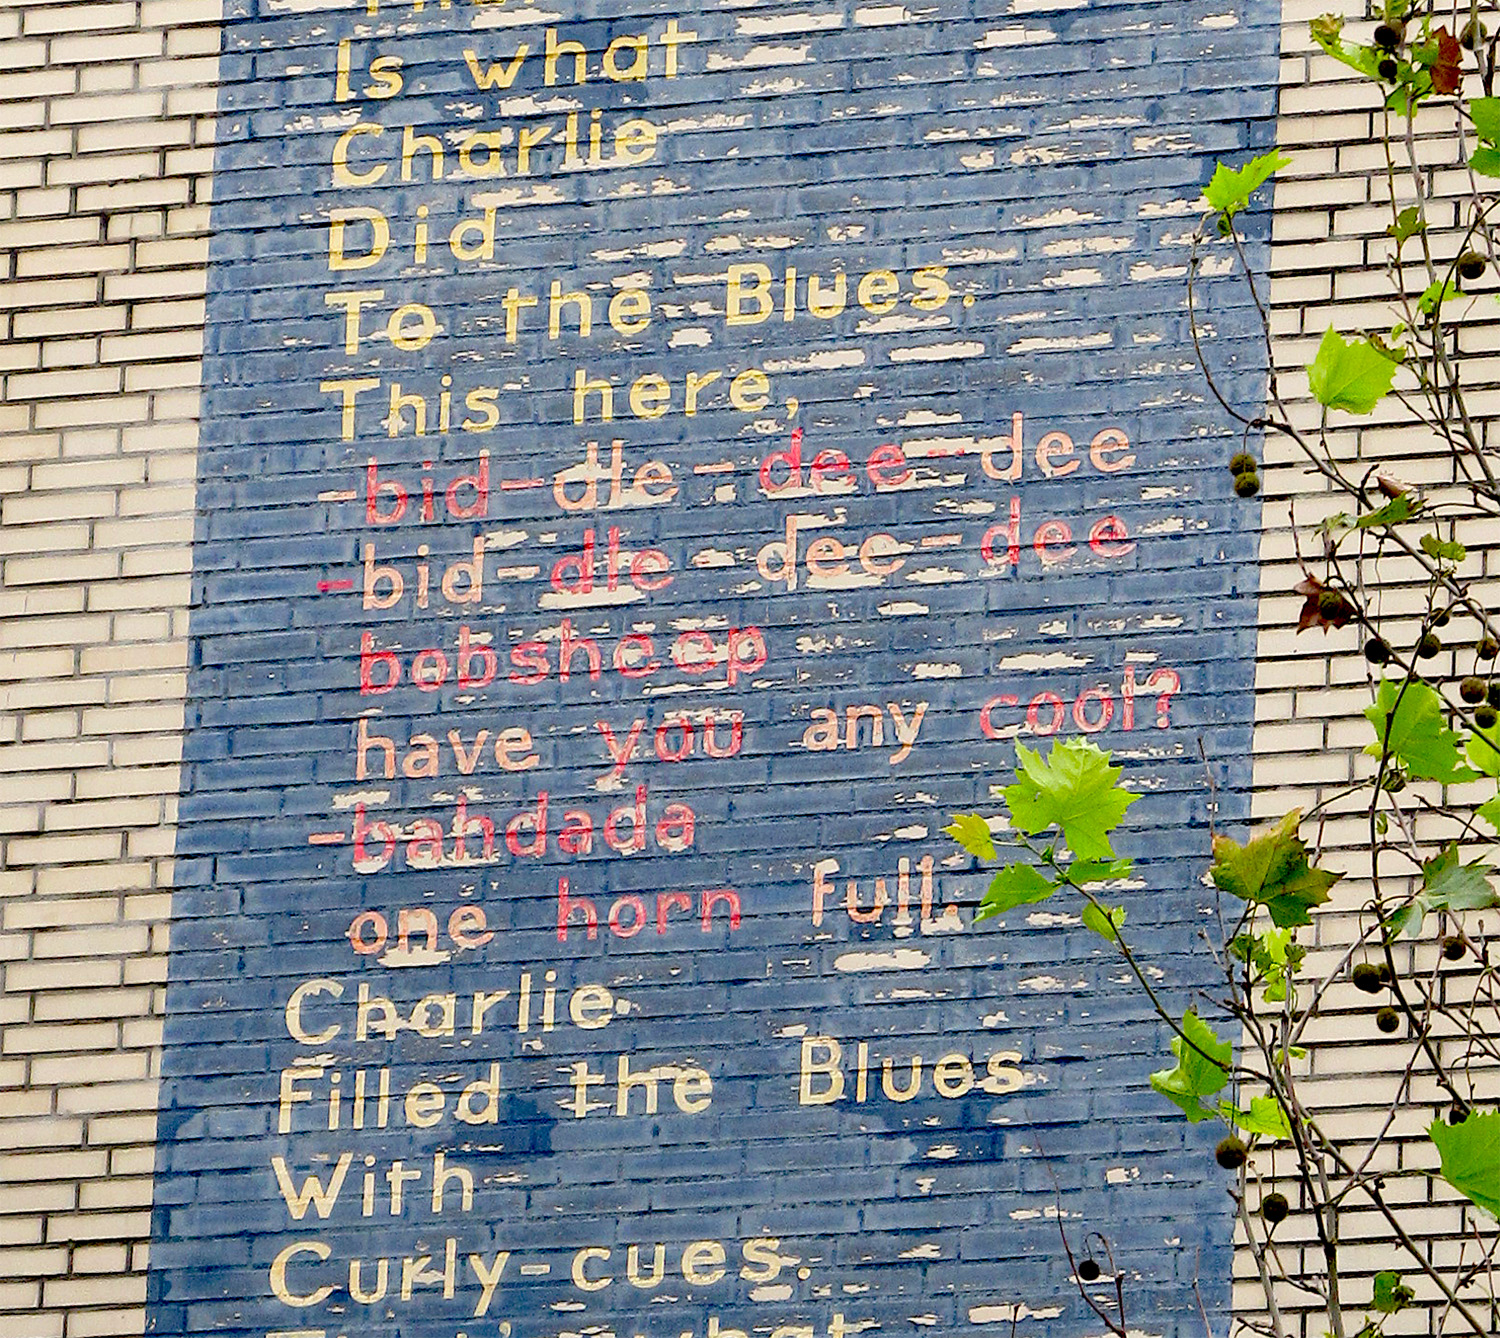 Is what
Charlie
Did
To the Blues.
This here,
-bid-dle-dee-dee
-bid-dle-dee-dee
bobsheep
have you any cool?
-bahdada
one horn full.
Charlie
Filled the Blues
With
Curly-cues.
what